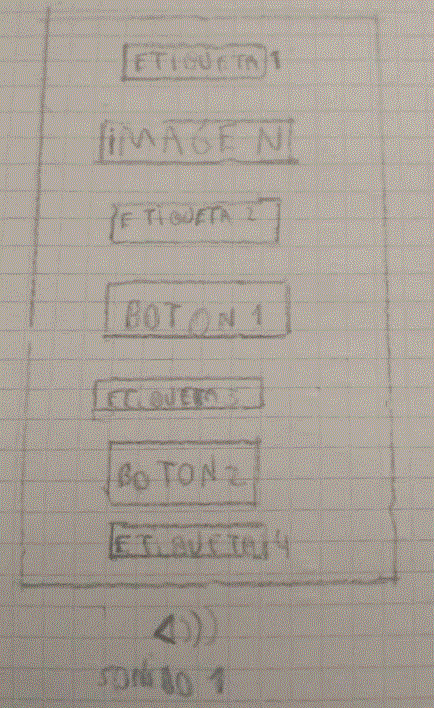 ETIQUETA 1
iMAGEN
ETIQUETA 2
BOTON 1
ETIQUETA 3
BOTON 2
ETIQUETA 4
SONIDO 1